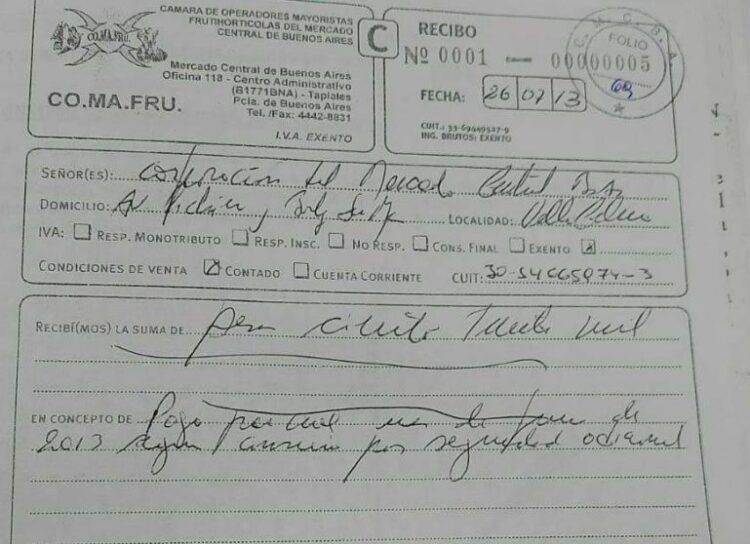 CAMARA DE OPERADORES MAYORISTAS
FRUTIHORTICOLAS DEL MERCADO
CENTRAL DE BUENOS AIRES
CO.MA.FRU.
Mercado Central de Buenos Aires
Oficina 118 - Centro Administrativo
(B1771BNA) - Tapiales
Pcia. de Buenos Aires
Tel. /Fax: 4442-8831
CO.MA.FRU.
I.V.A. EXENTO
C
RECIBO
Nº 0001 — 00000005
FOLIO
FECHA: 26 07 13
CUIT.: 33-69649527-9
ING. BRUTOS: EXENTO
SEÑOR(ES): Corporación del Mercado Central
DOMICILIO: Av LOCALIDAD:
IVA: RESP. MONOTRIBUTO RESP. INSC. NO RESP. CONS. FINAL EXENTO
CONDICIONES DE VENTA CONTADO CUENTA CORRIENTE CUIT:
RECIBÍ(MOS) LA SUMA DE mil
EN CONCEPTO DE Pago de
2013 según convenio por seguridad adicional